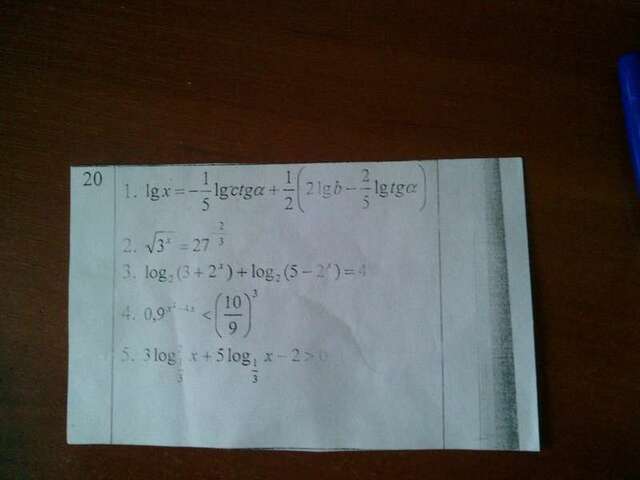 20
1. lg x = -\frac{1}{5} lg ctg α + \frac{1}{2} \left( 2 lg b - \frac{2}{5} lg tg α \right)
2. \sqrt{3^x} = 27^{-\frac{2}{3}}
3. log_2 (3 + 2^x) + log_2 (5 - 2^x) = 4
4. 0,9^{x^2 - 4x} < \left( \frac{10}{9} \right)^3
5. 3 log^2_{\frac{1}{3}} x + 5 log_{\frac{1}{3}} x - 2 > 0